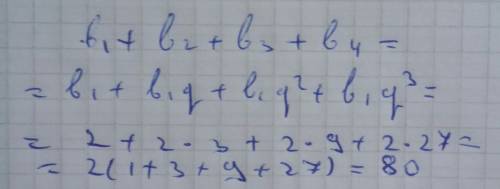 b₁ + b₂ + b₃ + b₄ =
= b₁ + b₁q + b₁q² + b₁q³ =
= 2 + 2·3 + 2·9 + 2·27 =
= 2(1+3+9+27) = 80